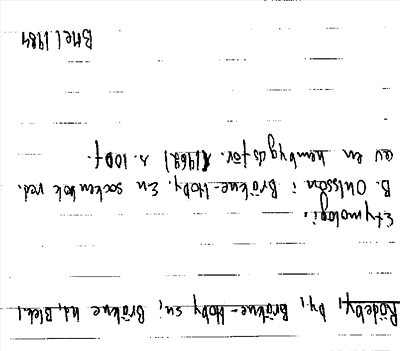 Rödeby, by, Bräkne-Hoby sn, Bräkne hd, Blek.
Etymologi:
B. Ohlsson i Bräkne-Hoby. En sockenbok red.
av en hembygdsför. (1968) s. 100 f.
BHel 1984